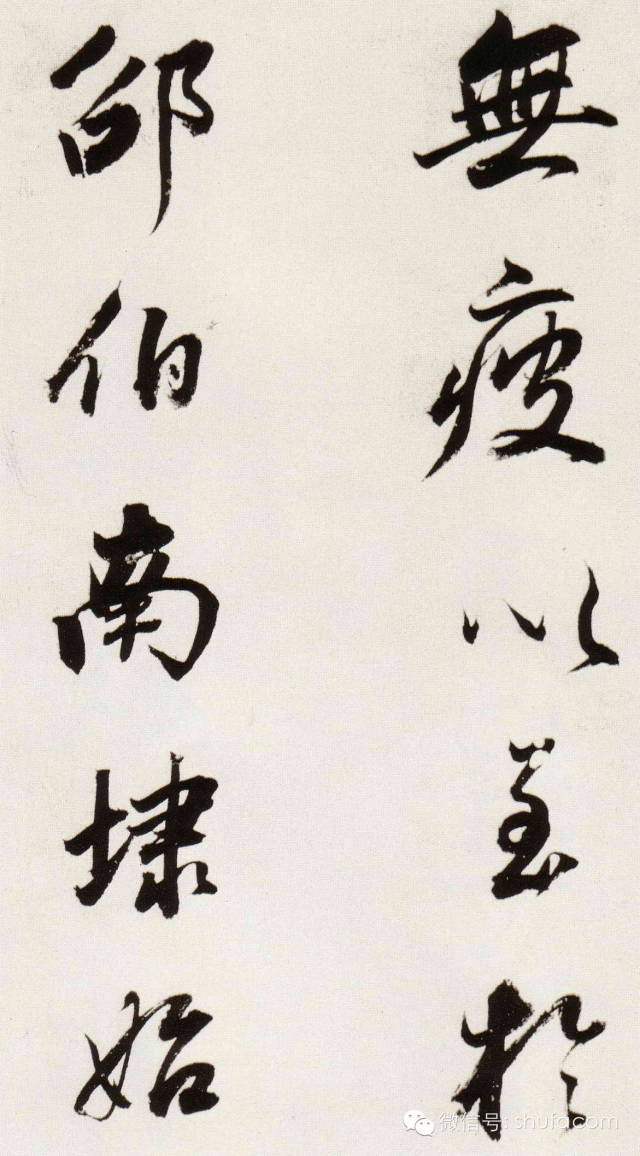 無疲以至於
邵伯南埭始
微信号: shufacom